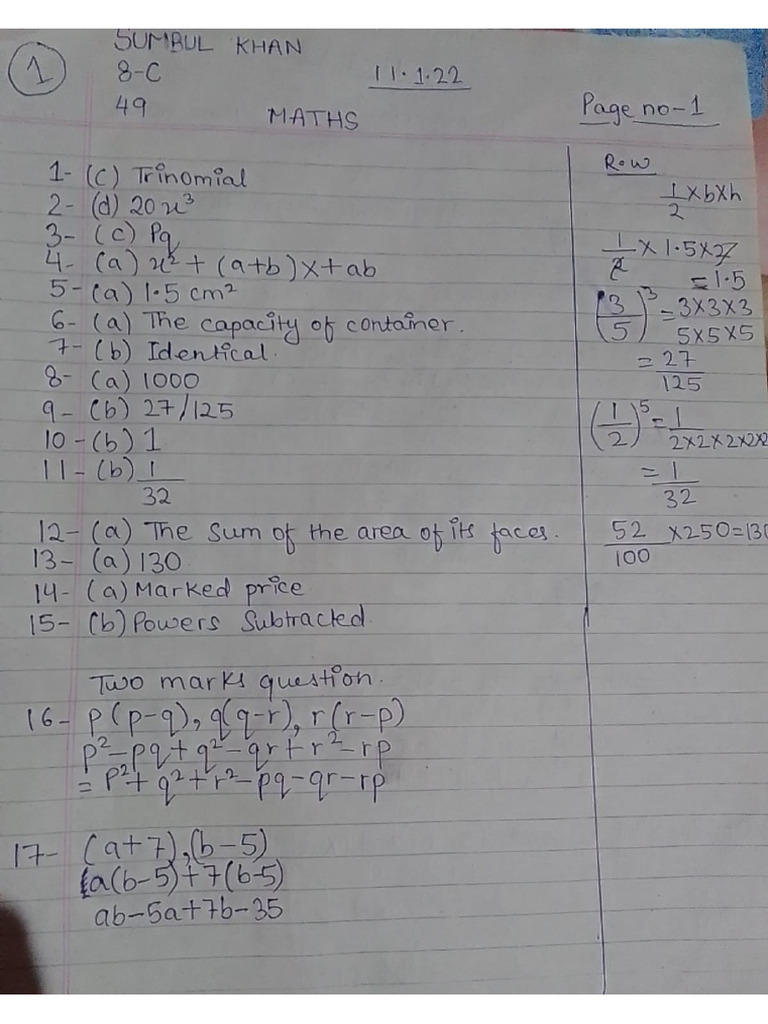 1
SUMBUL KHAN
8-C
11.1.22
49
MATHS
Page no-1
1- (c) Trinomial
2- (d) 20x³
3- (c) Pq
4- (a) x² + (a+b)x+ab
5- (a) 1.5 cm²
6- (a) The capacity of container.
7- (b) Identical.
8- (a) 1000
9- (b) 27/125
10- (b) 1
11- (b) 1/32
12- (a) The Sum of the area of its faces.
13- (a) 130
14- (a) Marked price
15- (b) Powers Subtracted.
Two marks question.
16- p(p-q), q(q-r), r(r-p)
p²-pq+q²-qr+r²-rp
= p²+q²+r²-pq-qr-rp
17- (a+7),(b-5)
a(b-5)+7(b-5)
ab-5a+7b-35
R.w
1/2 ×b×h
1/2 × 1.5×2
=1.5
(3/5)³ = 3×3×3/5×5×5
= 27/125
(1/2)⁵ = 1/2×2×2×2×2
= 1/32
52/100 ×250=130